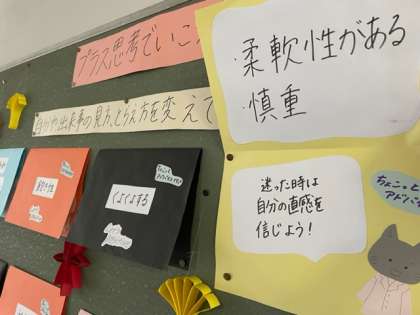 プラス思考でいこ
自分や出来事の見方、とらえ方を変えて
・柔軟性がある
・慎重
迷った時は
自分の直感を
信じよう！
ちょこっと
アドバイ
くよくよする